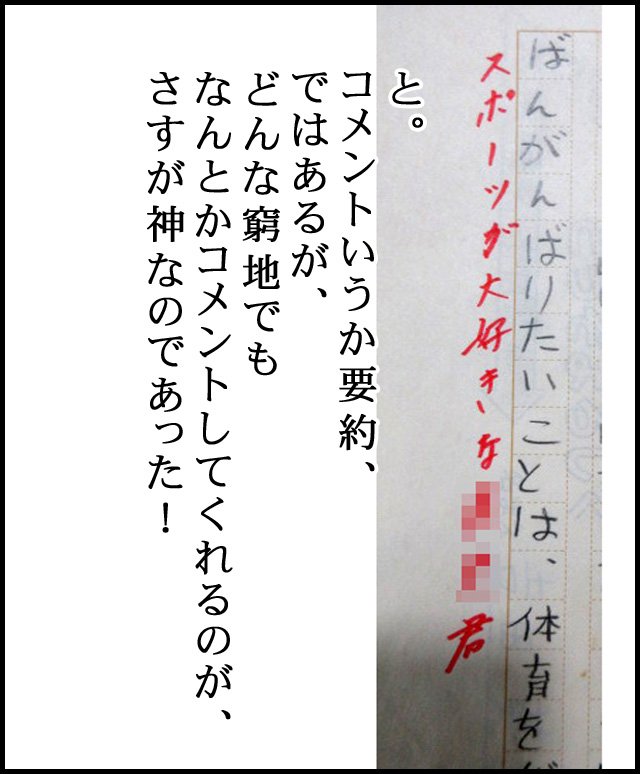 ばんがんばりたいことは、体育を
スポーツが大好きな
君
と。
コメントいうか要約、
ではあるが、
どんな窮地でも
なんとかコメントしてくれるのが、
さすが神なのであった！